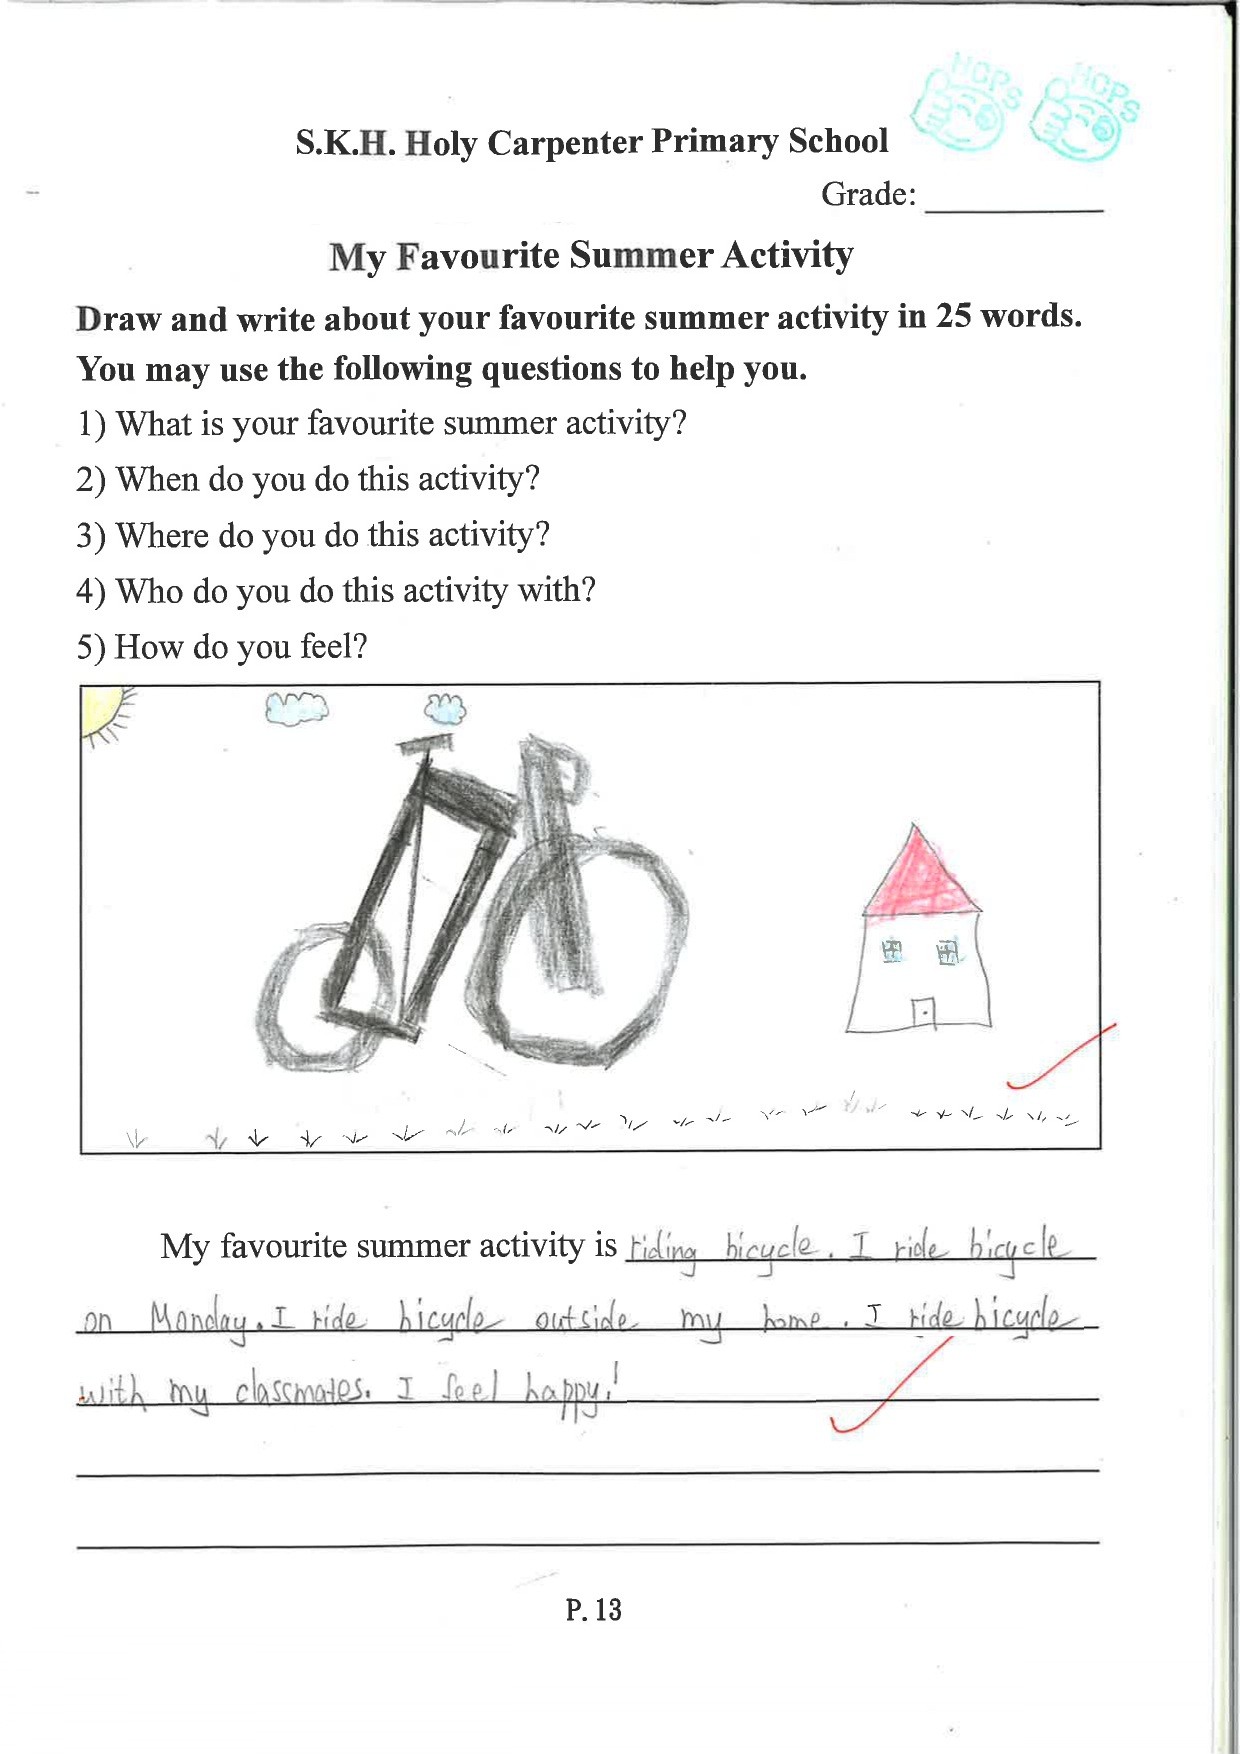 HCPS HCPS
S.K.H. Holy Carpenter Primary School
Grade:
My Favourite Summer Activity
Draw and write about your favourite summer activity in 25 words.
You may use the following questions to help you.
1) What is your favourite summer activity?
2) When do you do this activity?
3) Where do you do this activity?
4) Who do you do this activity with?
5) How do you feel?
My favourite summer activity is riding bicycle. I ride bicycle
on Monday. I ride bicycle outside my home. I ride bicycle
with my classmates. I feel happy!
P. 13